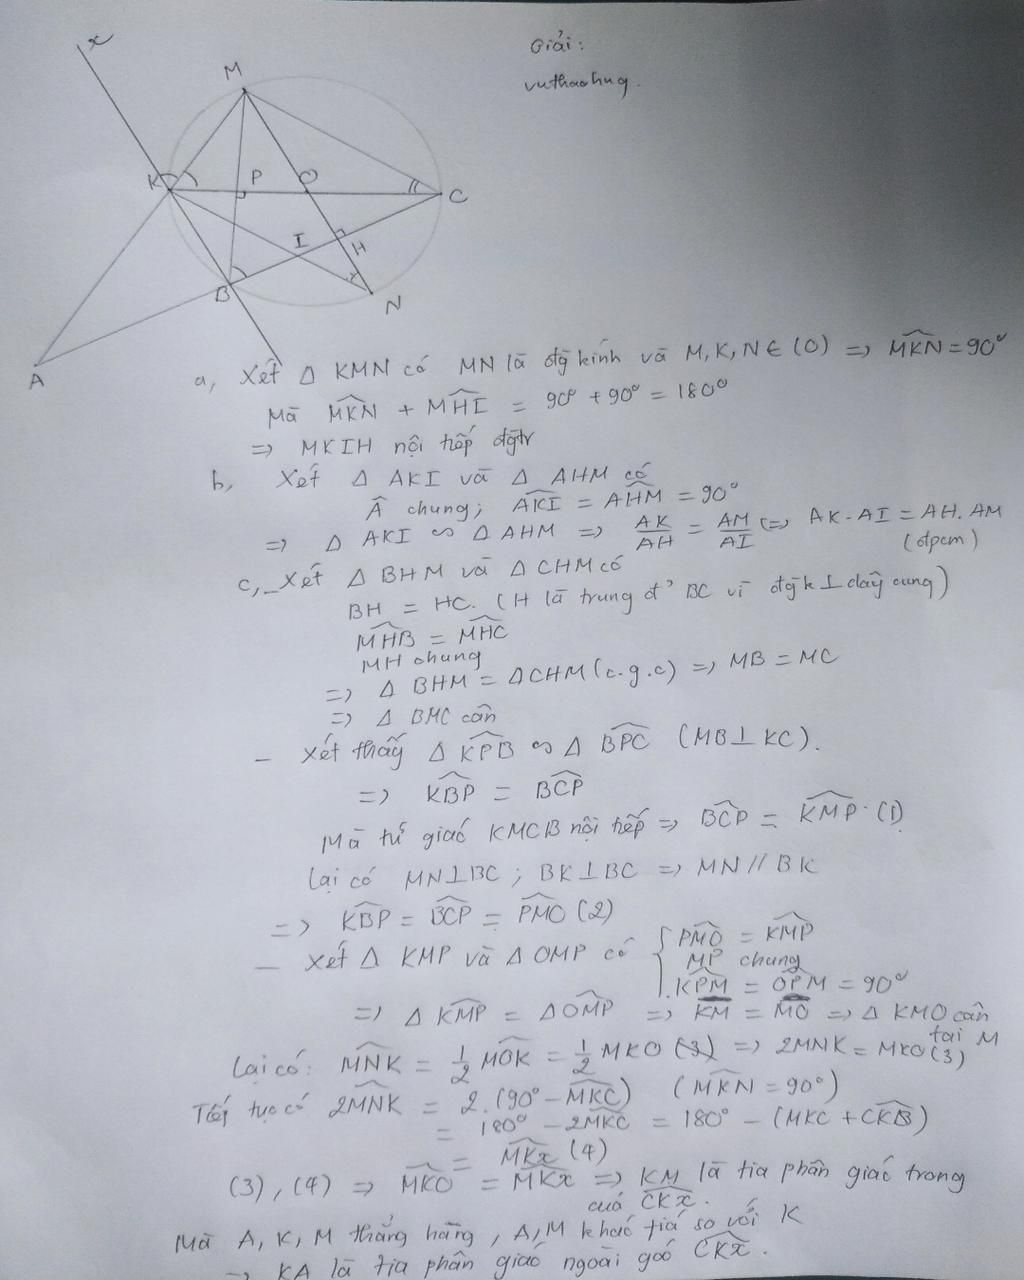 Giải:
vuthaohug.
x
M
K
P
O
C
I
H
B
N
A
a, Xét Δ KMN có MN là đg̃ kính và M, K, N ∈ (O) => MKN = 90°
Mà MKN + MHI = 90° + 90° = 180°
=> MKIH nội tiếp đg̃tr
b, Xét Δ AKI và Δ AHM có
Â chung; AKI = AHM = 90°
=> Δ AKI ∽ Δ AHM => AK/AH = AM/AI (=> AK.AI = AH.AM
(đpcm)
c, _Xét Δ BHM và Δ CHM có
BH = HC. (H là trung đ' BC vì đg̃k ⊥ dây cung)
MHB = MHC
MH chung
=> Δ BHM = ΔCHM (c.g.c) => MB = MC
=> Δ BMC cân
- Xét thấy Δ KPB ∽ Δ BPC (MB⊥KC).
=> KBP = BCP
Mà tứ giác KMCB nội tiếp => BCP = KMP. (1)
Lại có MN⊥BC ; BK⊥BC => MN // BK
=> KBP = BCP = PMO (2)
- Xét Δ KMP và Δ OMP có { PMO = KMP
MP chung
KPM = OPM = 90°
=> Δ KMP = ΔOMP => KM = MO => Δ KMO cân
tại M
Lại có: MNK = 1/2 MOK = 1/2 MKO (3) => 2MNK = MKO (3)
Tiếp tục có 2MNK = 2.(90° - MKC) (MKN = 90°)
= 180° - 2MKC = 180° - (MKC + CKB)
= MKx (4)
(3), (4) => MKO = MKx => KM là tia phân giác trong
của CKx.
Mà A, K, M thẳng hàng, A, M khác tia so với K
=> KA là tia phân giác ngoài góc CKx.